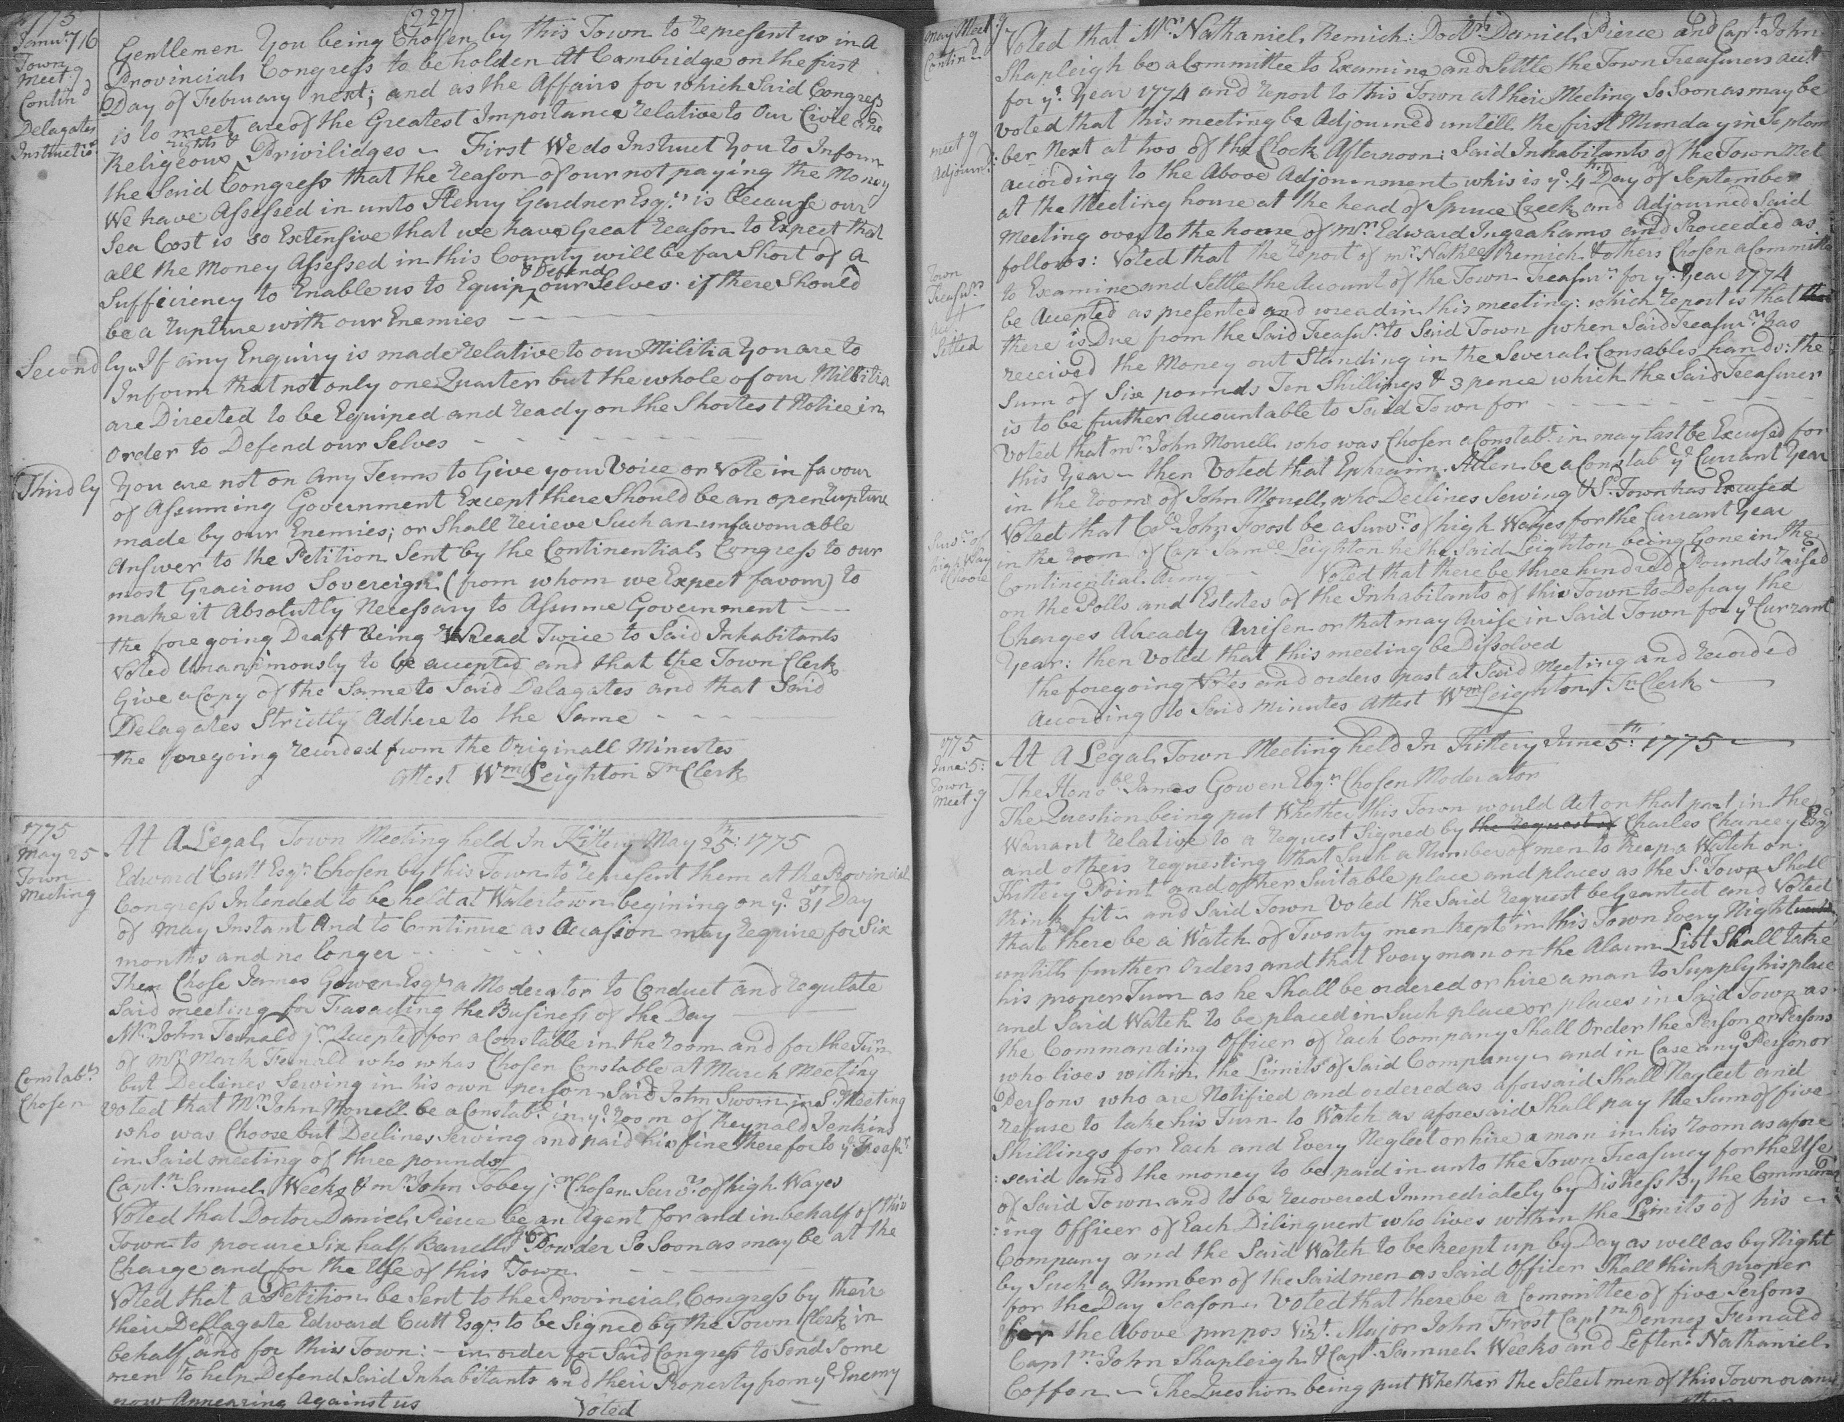 (227)
1775
Janu.y 16
Town
Meet.g
Contin.d
Delagates
Instructio.s
Gentlemen You being Chosen by this Town to represent us in A
Provincial Congress to be holden At Cambridge on the first
Day of February next; and as the Affairs for which Said Congress
is to meet are of the Greatest Importance relative to Our Civil and
Religeous rights & Priviliedges ~ First We do Instruct You to Inform
the Said Congress that the reason of our not paying the Money
We have Assessed in unto Henry Gardner Esq.r is because our
Sea Cost is so Extensive that we have Great reason to Expect that
all the Money Assessed in this County will be far Short of A
Sufficiency to Enable us to Equip & Defend our Selves if there Should
be a rupture with our Enemies
Secondly If any Enquiry is made relative to our Militia You are to
Inform that not only one Quarter but the whole of our Militia
are Directed to be Equiped and ready on the Shortest Notice in
order to Defend our Selves
Thirdly You are not on Any Terms to Give your Voice or Vote in favour
of Assuming Government Except there Should be an open rupture
made by our Enemies; or Shall recieve Such an unfavourable
Answer to the Petition Sent by the Continential Congress to our
most Gracious Sovereign (from whom we Expect favour) to
make it Absolutly Necessary to Assume Government
the foregoing Draft being Wread Twice to Said Inhabitants
Voted Unanimously to be accepted and that the Town Clerk
Give a Copy of the Same to Said Delagates and that Said
Delagates Strictly Adhere to the Same
the foregoing recorded from the Originall Minutes
Attest W.m Leighton T.n Clerk
1775
May 25
Town
Meeting
At A Legal Town Meeting held In Kittery May 25.th: 1775
Edward Cutt Esq.r Chosen by this Town to represent them at the Provincial
Congress Intended to be held at Watertown begining on y.e 31.st Day
of May Instant And to Continue as Accasion may require for Six
months and no longer
Then Chose James Gowen Esq.r a Moderator to Conduct and regulate
Said meeting for Trasacting the Business of the Day
M.r John Fernald j.r Accepted for a Constable in the room and for the Turn
of M.r Mark Fernald who whas Chosen Constable at March Meeting
but Declines Serving in his own person Said John Sworn in S.d Meeting
Constab.ls
Chosen
Voted that M.r John Morrell be a Constab.l in y.e room of Reynald Jenkins
who was Choose but Declines Serving and paid his fine therefor to y.e Treas.r
in Said meeting of three pounds
Capt.n Samuel Weeks & M.r John Tobey j.r Chosen Surv.rs of high Wayes
Voted that Doctor Daniel Pierce be an Agent for and in behalf of this
Town to procure Six half Barrells of Powder So Soon as may be at the
Charge and for the Use of this Town
Voted that a Petition be Sent to the Provincial Congress by their
their Dellagate Edward Cutt Esq.r to be Signed by the Town Clerk in
behalf and for this Town: ~ in order for Said Congress to Send Some
men to help Defend Said Inhabitants and their Property from y.e Enemy
now Appearing Against us
Voted
May Meet.g
Contin.d
Voted that M.r Nathaniel Remich: Doct.r Daniel Pierce and Cap.t John
Shapleigh be a Committee to Examine and Settle the Town Treasurers acct
for y.e Year 1774 and report to this Town at their Meeting So Soon as may be
meet.g
Adjourn.d
voted that this meeting be Adjourned untill the first Munday in Septem
ber Next at two of the Clock Afternoon: Said Inhabitants of the Town Met
according to the Above Adjournment whis is y.e 4.th Day of September
at the Meeting house at the head of Spruce Creek and Adjourned Said
Meeting over to the house of M.r Edward Ingrahams and Proceeded as
follows: Voted that the report of M.r Nath.l Remich & others Chosen a Committe
Town
Treasur.rs
Acc.t
Setled
to Examine and Settle the Account of the Town Treasur.r for y.e Year 1774
be Accepted as presented and wread in this meeting: which report is that
there is Due from the Said Treasur.r to Said Town when Said Treasur.r has
received the Money out Standing in the Several Constables hands: the
Sum of Six pounds Ten Shillings & 3 pence which the Said Treasurer
is to be further Accountable to Said Town for
Voted that M.r John Morrell who was Chosen a Constab.l in may last be Excused for
this Year ~ then Voted that Ephraim Allen be a Constab.l y.e Currant Year
in the room of John Morrell who Declines Serving & S.d Town has Excused
Surv.r of
high Way
Choose
Voted that John Frost be a Surv.r of high Wayes for the Currant Year
in the room of Cap.t Sam.ll Leighton he the Said Leighton being Gone in the
Continential Army Voted that there be three hundred Pounds raised
on the Polls and Estates of the Inhabitants of this Town to Defray the
Charges Already Arrisen or that may Arrise in Said Town for y.e Currant
Year: then Voted that this meeting be Dissolved
the foregoing Votes and orders past at Said Meeting and recorded
According to Said Minutes Attest W.m Leighton T.n Clerk
1775
June: 5:
Town
Meet.g
At A Legal Town Meeting held In Kittery June 5.th: 1775
The Hono.ble James Gowen Esq.r Chosen Moderator
The Question being put Whether this Town would Act on that part in the
Warrant relative to a request Signed by the request of Charles Chancey Esq.r
and others requesting that Such a Number of men to Keep a Watch on
Kittery Point and other Suitable place and places as the S.d Town Shall
think fit ~ and Said Town Voted the Said request be Granted and Voted
that there be a Watch of Twenty men kept in this Town Every Night
untill further Orders and that Every man on the Alarm List Shall take
his proper Turn as he Shall be ordered or hire a man to Supply his place
and Said Watch to be placed in Such place or places in Said Town as
the Commanding Officer of Each Company Shall Order the Person or Persons
who lives within the Limits of Said Company ~ and in Case any Person or
Persons who are Notified and ordered as aforesaid Shall Neglect and
refuse to take his Turn to Watch as aforesaid Shall pay the Sum of five
Shillings for Each and Every Neglect or hire a man in his room as afore
:said and the money to be paid in unto the Town Treasury for the Use
of Said Town and to be recovered Immediately by Distress By the Command
:ing Officer of Each Dilinquent who lives within the Limits of his ~
Company and the Said Watch to be keept up by Day as well as by Night
by Such a Number of the Said men as Said Officer Shall think proper
for the Day Season. Voted that there be a Committee of five Persons
for the Above purpos Viz.t Major John Frost Capt.n Dennes Fernald
Capt.n John Shapleigh & Cap.t Samuel Weeks and Leften.t Nathaniel
Coffen. ~ The Question being put Whether the Select men of this Town or any
other